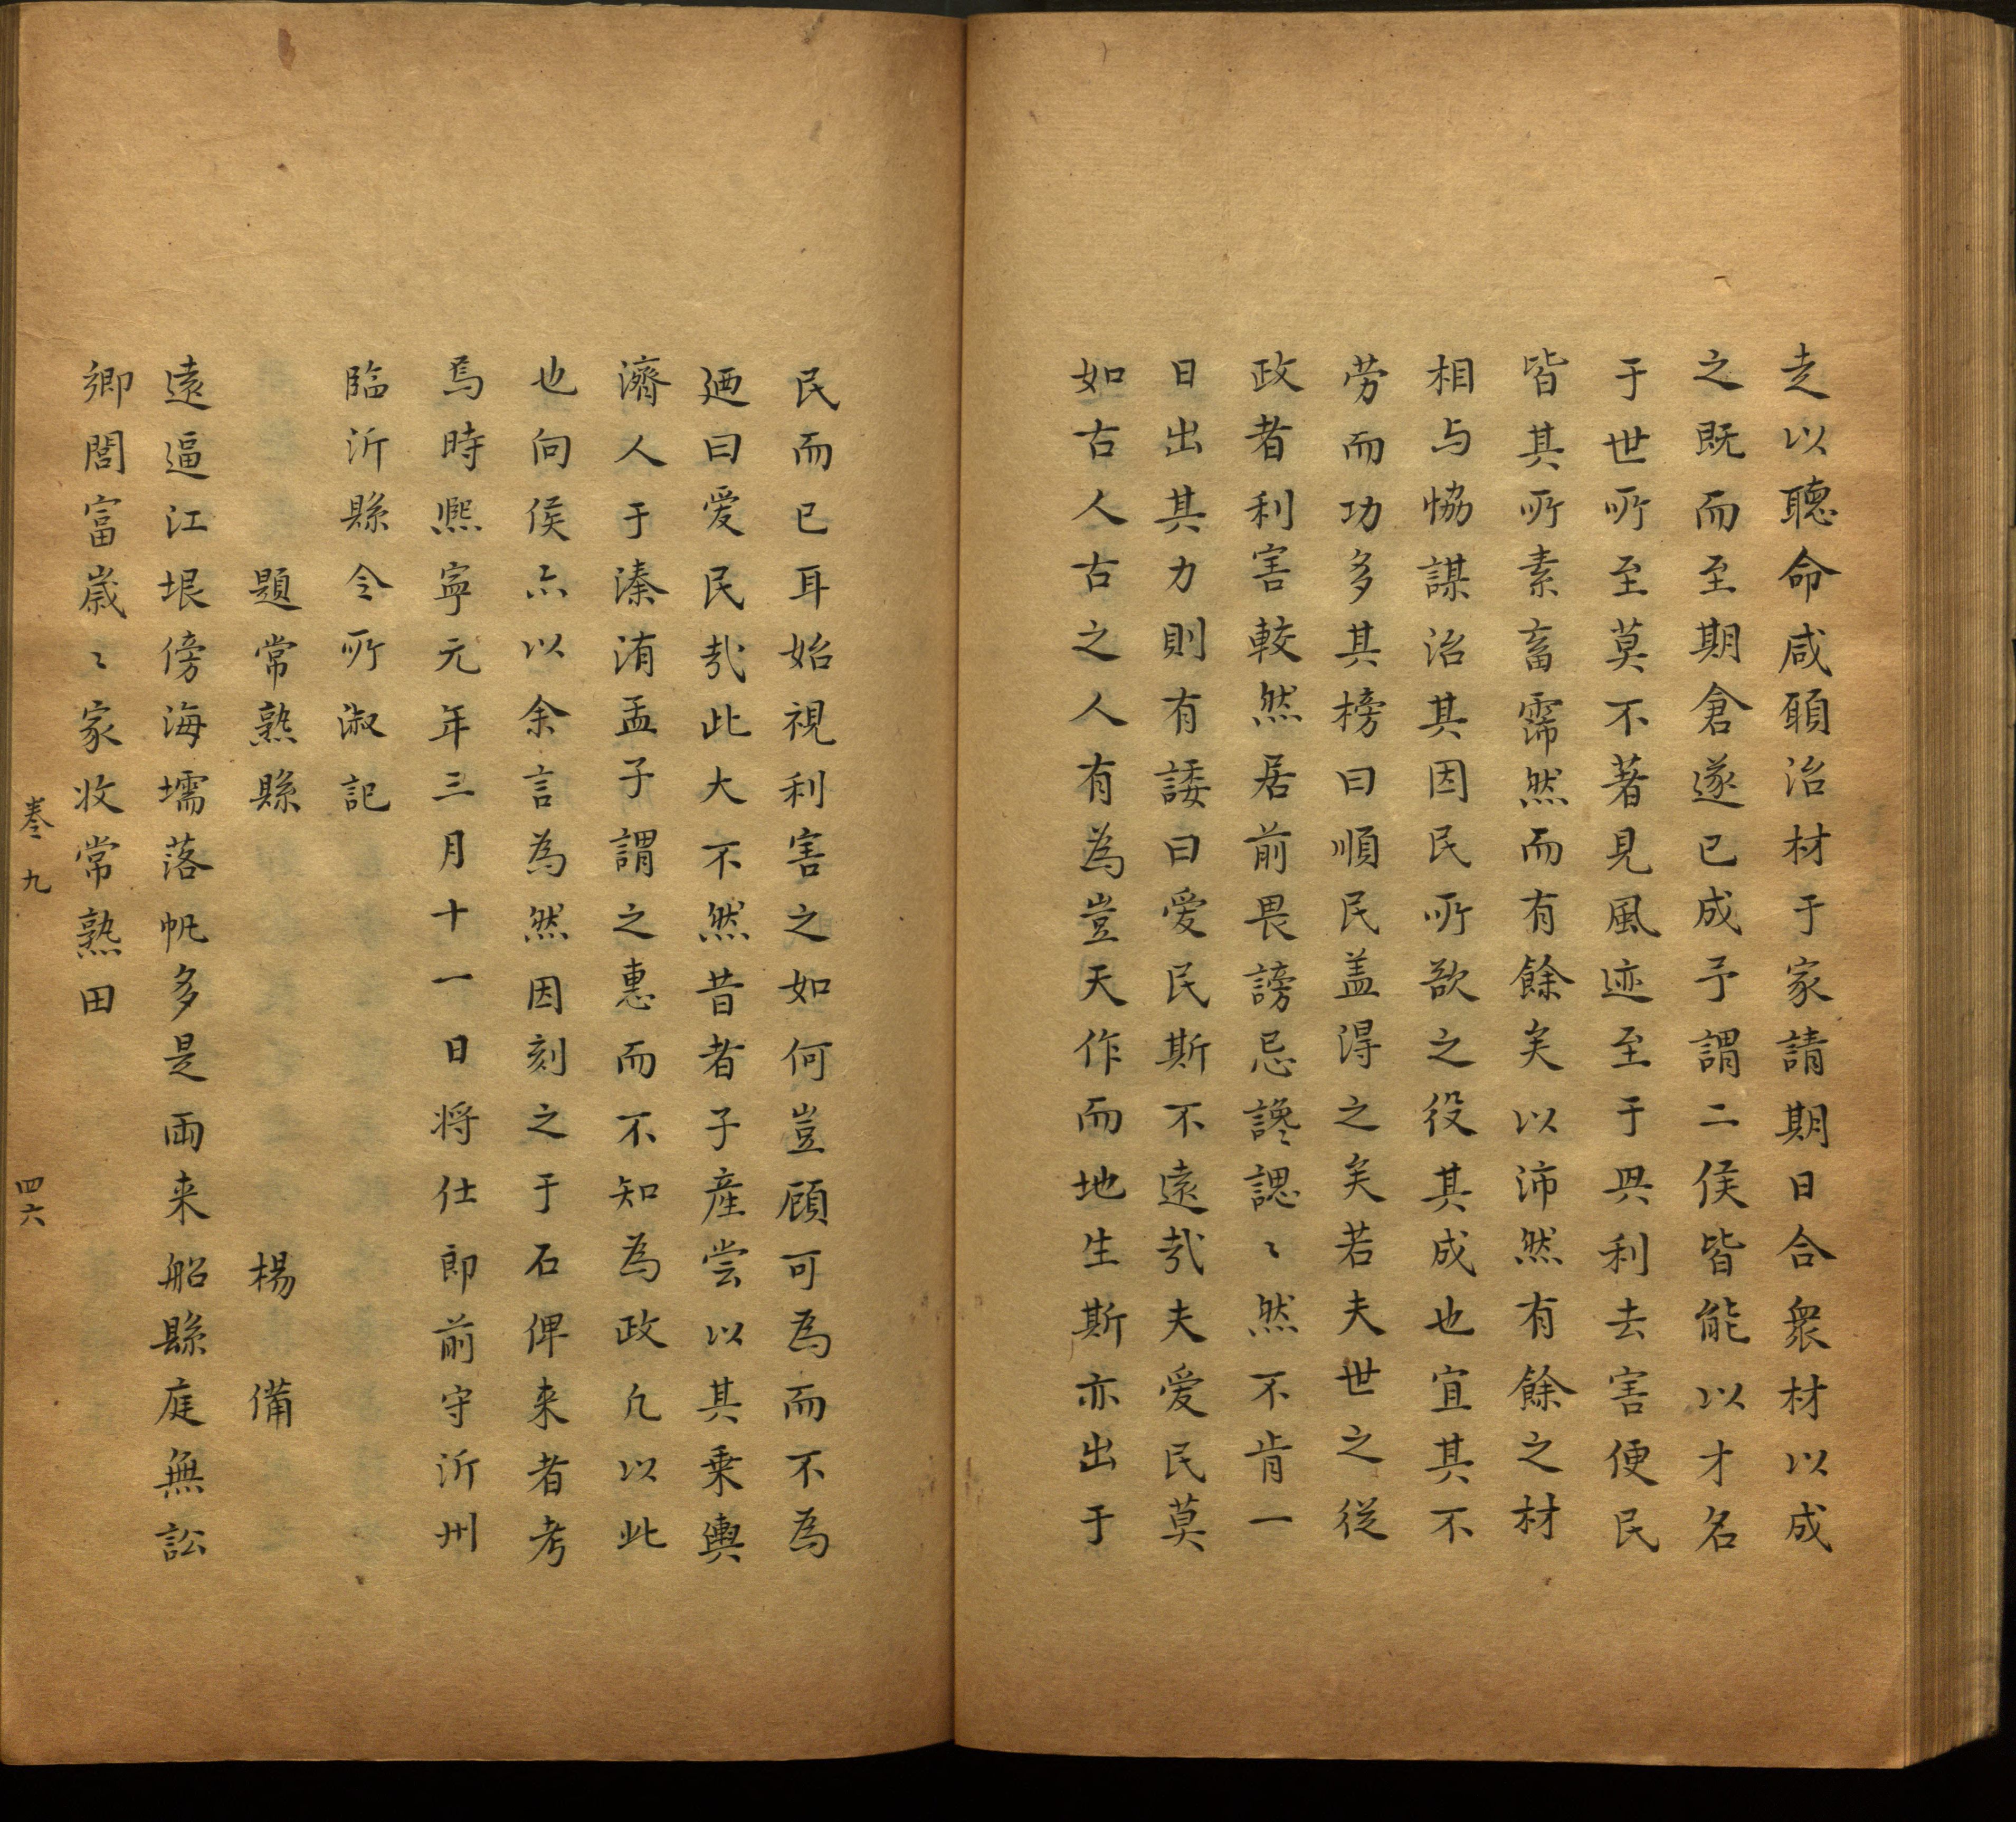 走以聴命咸願治材于家請期日合衆材以成
之既而至期倉遂已成予謂二侯皆能以才名
于世所至莫不著見風迹至于興利去害便民
皆其所素畜霈然而有餘矣以沛然有餘之材
相与恊謀治其因民所欲之役其成也宜其不
劳而功多其榜曰順民盖淂之矣若夫世之従
政者利害較然居前畏謗忌讒諰〻然不肯一
日出其力則有諉曰爱民斯不遠㢤夫爱民莫
如古人古之人有為豈天作而地生斯亦出于
民而已耳始視利害之如何豈顧可為而不為
廼曰爱民㢤此大不然昔者子産尝以其乗輿
濟人于溱洧孟子謂之惠而不知為政凢以此
也向侯亦以余言為然因刻之于石俾来者考
焉時熈寧元年三月十一日将仕郎前守沂州
臨沂縣令所淑記
題常熟縣　楊　備
遠逼江垠傍海壖落帆多是雨来船縣庭無訟
鄉閭富歳〻家收常熟田
卷九　四六